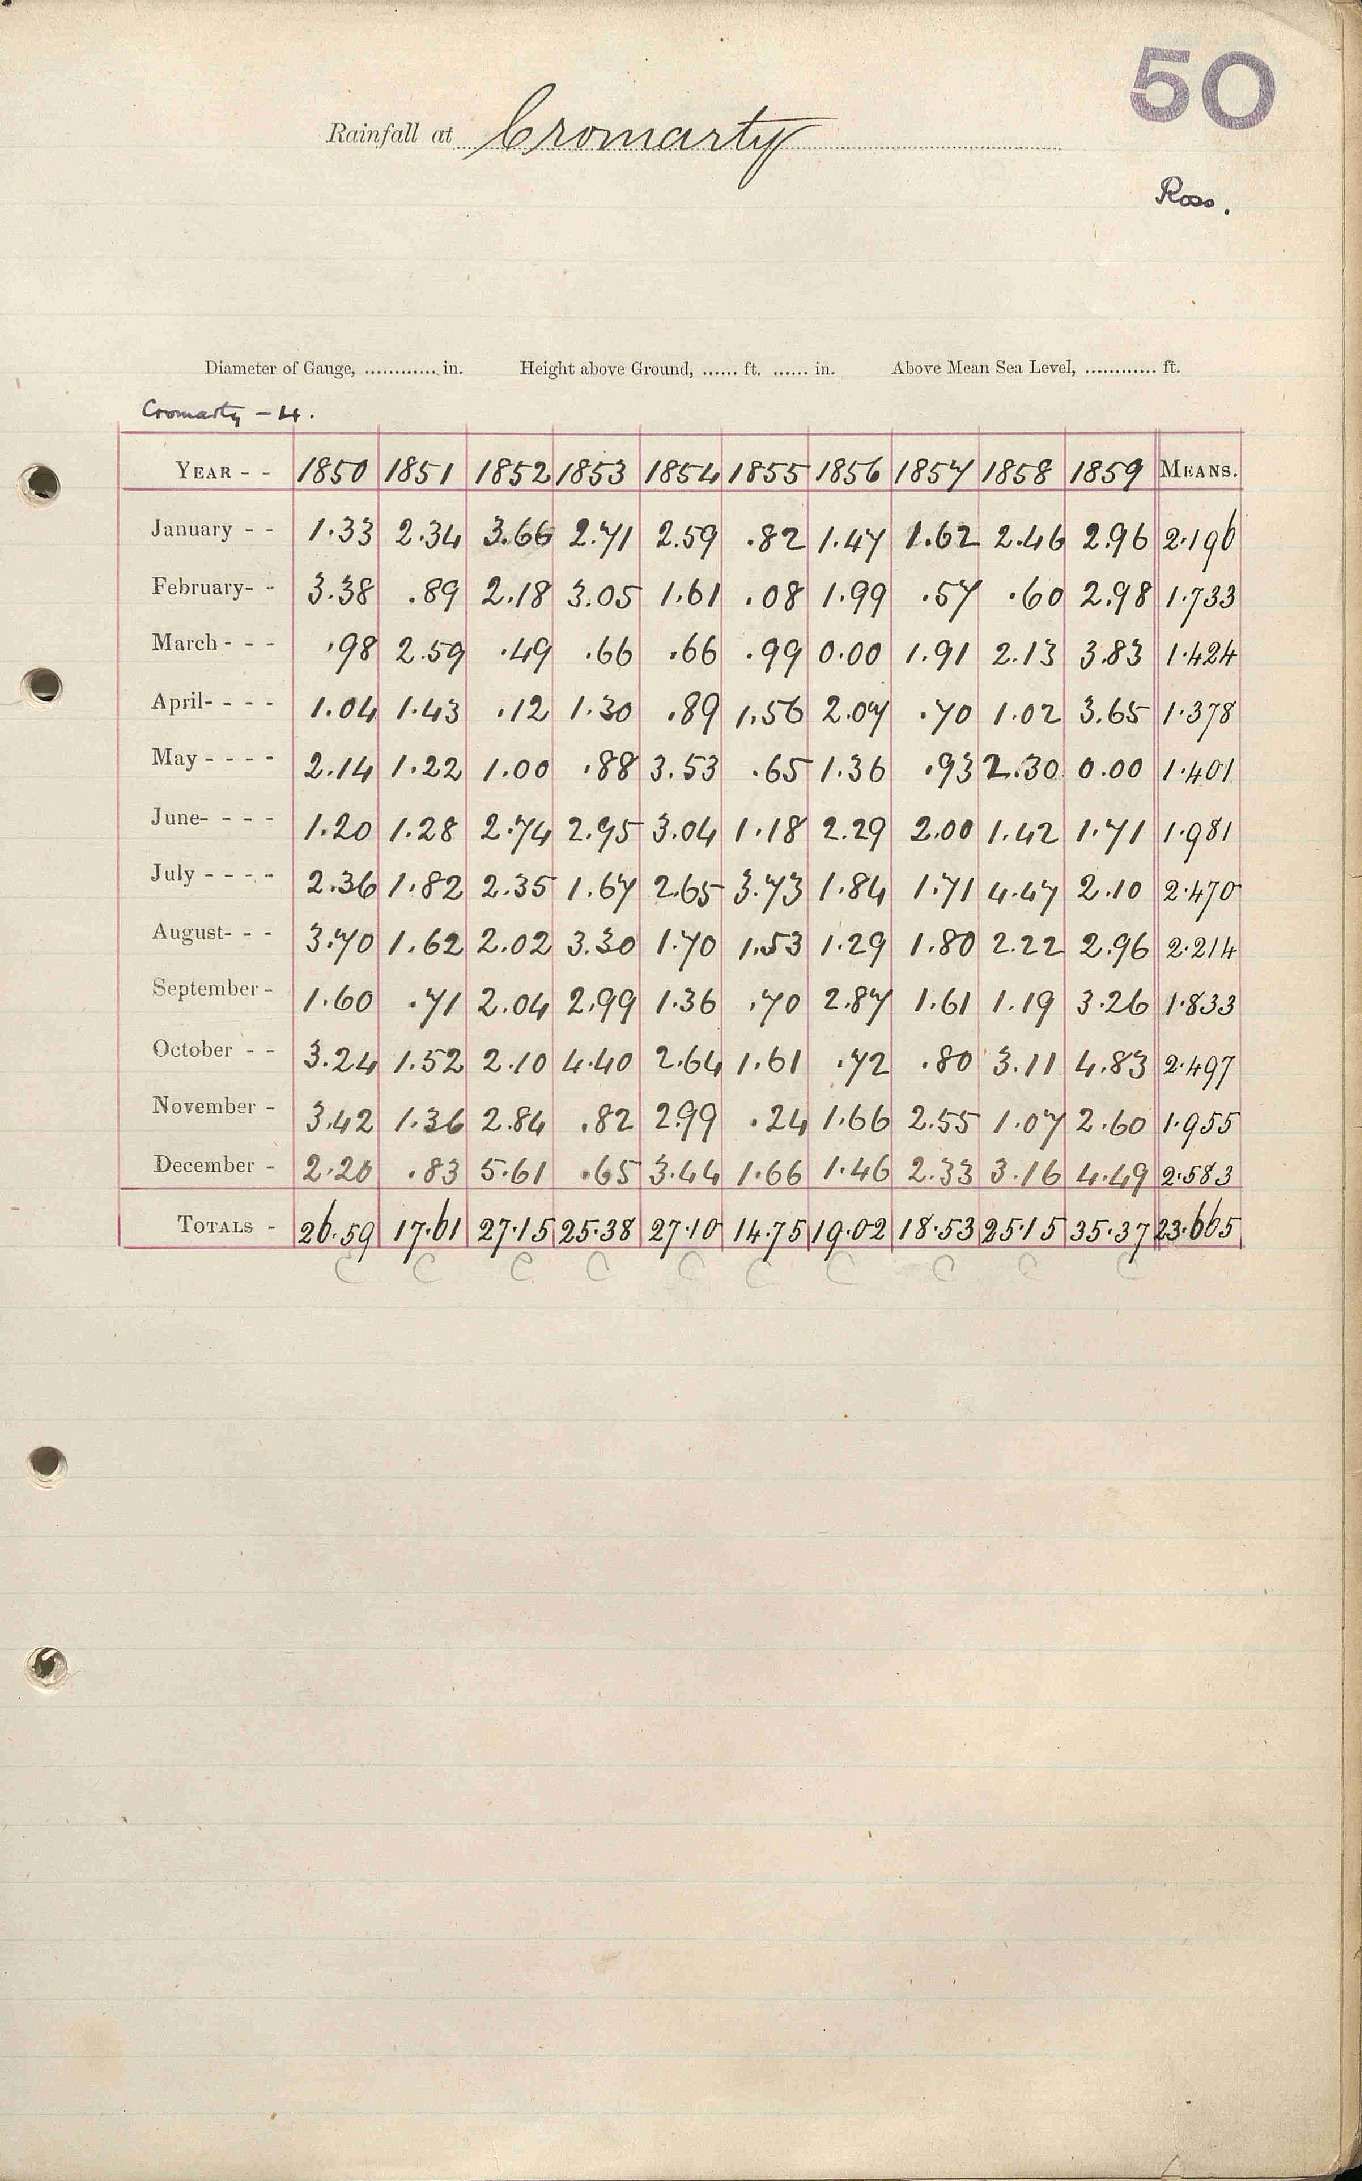 50
Rainfall at Cromarty
Ross.
Diameter of Gauge, ............ in. Height above Ground, ...... ft. ...... in. Above Mean Sea Level, ............ ft.
Cromarty - 4.
YEAR - - 1850 1851 1852 1853 1854 1855 1856 1857 1858 1859 MEANS.
January - - 1.33 2.34 3.66 2.71 2.59 .82 1.47 1.62 2.46 2.96 2.196
February- - 3.38 .89 2.18 3.05 1.61 .08 1.99 .57 .60 2.98 1.733
March - - - .98 2.59 .49 .66 .66 .99 0.00 1.91 2.13 3.83 1.424
April- - - - 1.04 1.43 .12 1.30 .89 1.56 2.07 .70 1.02 3.65 1.378
May - - - - 2.14 1.22 1.00 .88 3.53 .65 1.36 .93 2.30 0.00 1.401
June- - - - 1.20 1.28 2.74 2.95 3.04 1.18 2.29 2.00 1.42 1.71 1.981
July - - - - 2.36 1.82 2.35 1.67 2.65 3.73 1.84 1.71 4.47 2.10 2.470
August- - - 3.70 1.62 2.02 3.30 1.70 1.53 1.29 1.80 2.22 2.96 2.214
September - 1.60 .71 2.04 2.99 1.36 .70 2.87 1.61 1.19 3.26 1.833
October - - 3.24 1.52 2.10 4.40 2.64 1.61 .72 .80 3.11 4.83 2.497
November - 3.42 1.36 2.84 .82 2.99 .24 1.66 2.55 1.07 2.60 1.955
December - 2.20 .83 5.61 .65 3.44 1.66 1.46 2.33 3.16 4.49 2.583
TOTALS - 26.59 17.61 27.15 25.38 27.10 14.75 19.02 18.53 25.15 35.37 23.665
C C C C C C C C C C